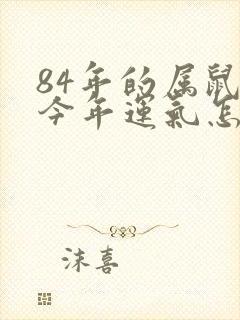 84年的属鼠
今年运气怎
沫喜